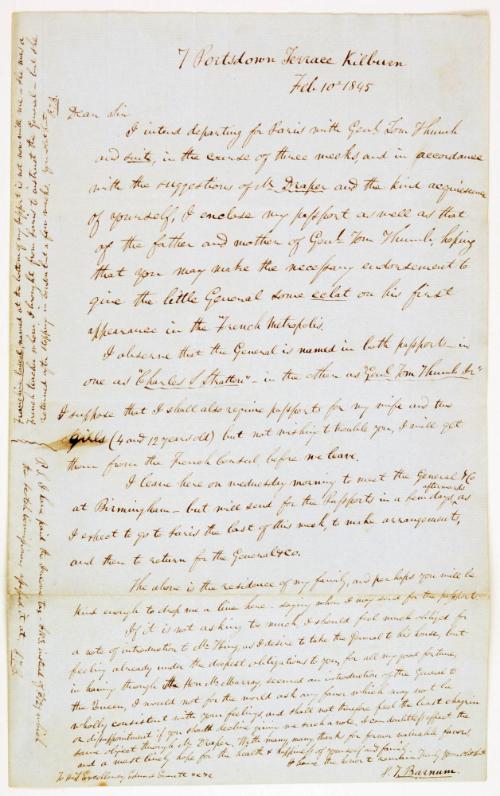 7 Portsdown Terrace Kilburn
Feb. 10th 1845
Dear Sir
I intend departing for Paris with Genl. Tom Thumb
and suit, in the course of three weeks, and in accordance
with the suggestions of Mr Draper and the kind acquiescence
of yourself, I enclose my passport as well as that
of the father and mother of Genl. Tom Thumb, hoping
that you may make the necessary endorsement to
give the little General some eclat on his first
appearance in the French Metropolis.
I observe that the General is named in both passports — in
one as "Charles S Stratton" — in the other as "Genl Tom Thumb Jr"
I suppose that I shall also require passports for my wife and two
girls (4 and 12 years old) but not wishing to trouble you, I will get
them from the French Consul, before we leave.
I leave here on wednesday morning to meet the General &c
at Birmingham — but will send for the passports in a few days, as
afterwards
I expect to go to Paris the last of this week, to make arrangements,
and then to return for the General & co.
The above is the residence of my family, and perhaps you will be
kind enough to drop me a line here — saying when I may send for the passports
If it is not asking too much I should feel much obliged for
a note of introduction to Mr King, as I desire to take the General to his house, but
feeling already under the deepest obligations to you for all my good fortune,
in having through the Hon Mr Murray, secured an introduction of the General to
the Queen, I would not for the world ask any favor which may not be
wholly consistent with your feelings, and shall not therefore feel the least chagrin
or disappointment if you should decline giving me such a note. I can doubtless effect the
same object through Mr Draper. With many many thanks for former valuable favors,
and a most lively hope for the health & happiness of yourself and family
I have the honor to remain Truly your obt
P. T. Barnum.
To His Excellency Edward Everett &c &c
named at the bottom of my passport is not now with me — she was a
French teacher whom I brought from Paris to instruct the General — but she
returned after stopping in London a few weeks.
P.S. I have paid the
P.T.B.